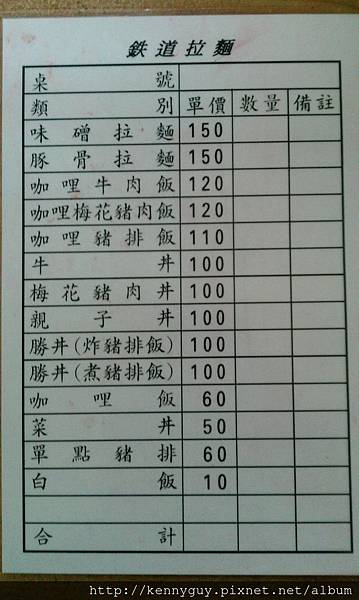 鉄道拉麵
桌號
類別 單價 數量 備註
味磳拉麵 150
豚骨拉麵 150
咖哩牛肉飯 120
咖哩梅花豬肉飯 120
咖哩豬排飯 110
牛丼 100
梅花豬肉丼 100
親子丼 100
勝丼(炸豬排飯) 100
勝丼(煮豬排飯) 100
咖哩飯 60
菜丼 50
單點豬排 60
白飯 10
合計
http://kennyguy.pixnet.net/album